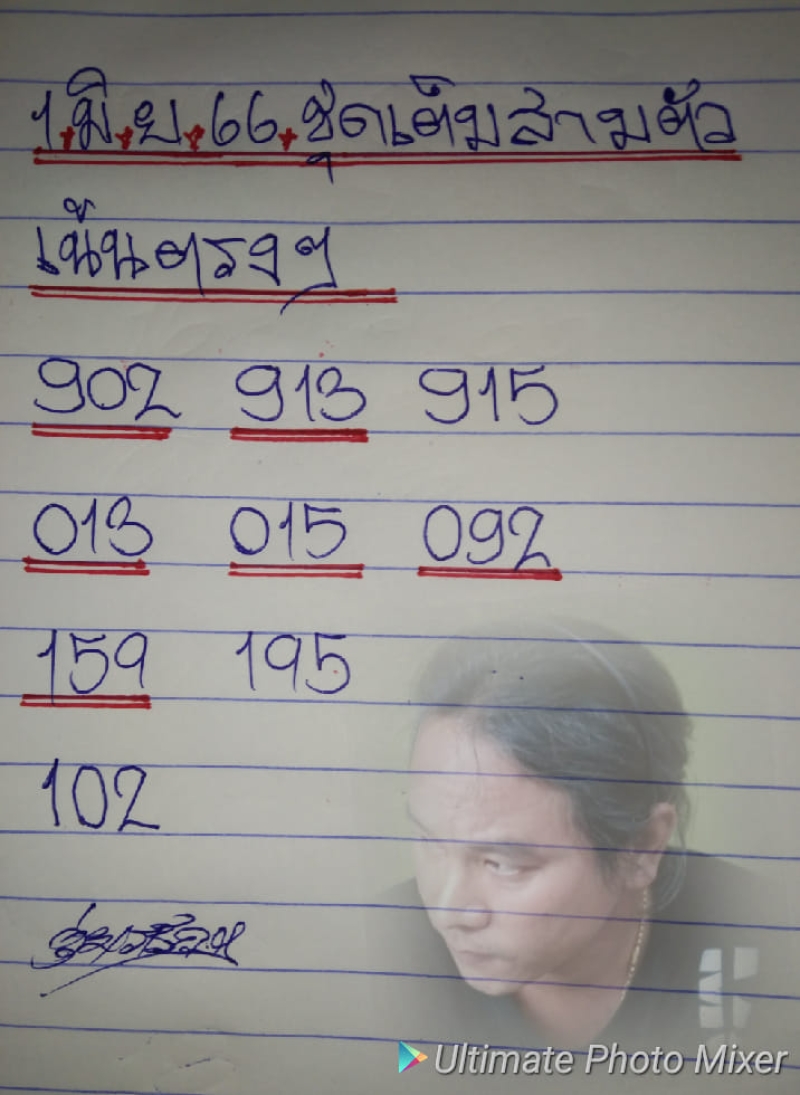 1.มิ.ย.66.ชุดเต็มสามตัว
เน้นตรงๆ
902 913 915
013 015 092
159 195
102
Ultimate Photo Mixer